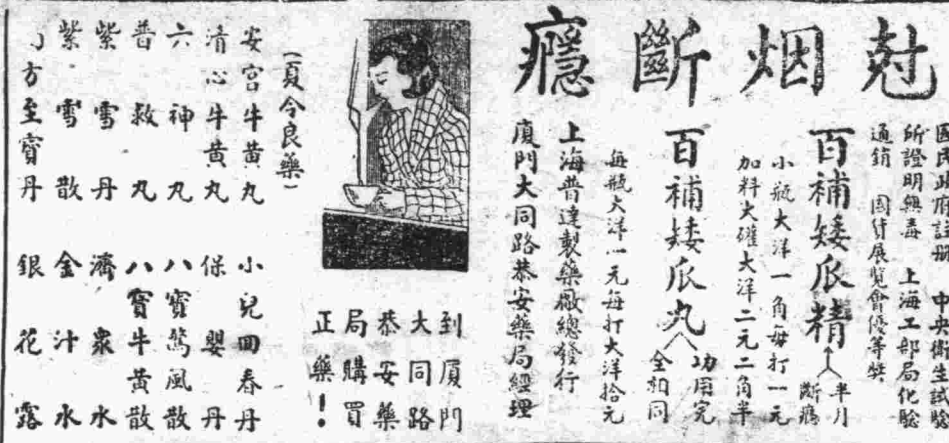 尅烟斷癮
國民政府註册　中央衛生試驗
所證明無毒　上海工部局化驗
通銷　國貨展覽會優等奬
百補矮瓜精
半月
斷癮
小瓶大洋一角每打一元
加料大礶大洋二元二角半
百補矮瓜丸
功用完
全相同
每瓶大洋一元每打大洋拾元
上海普達製藥廠總發行
廈門大同路恭安藥局經理
到廈門
大同路
恭安藥
局購買
正藥！
（夏令良藥）
安宮牛黃丸　小兒回春丹
清心牛黃丸　保嬰丹
六神丸　八寶驚風散
普救丸　八寶牛黃散
紫雪丹　濟衆水
紫雪散　金汁水
方至寶丹　銀花露